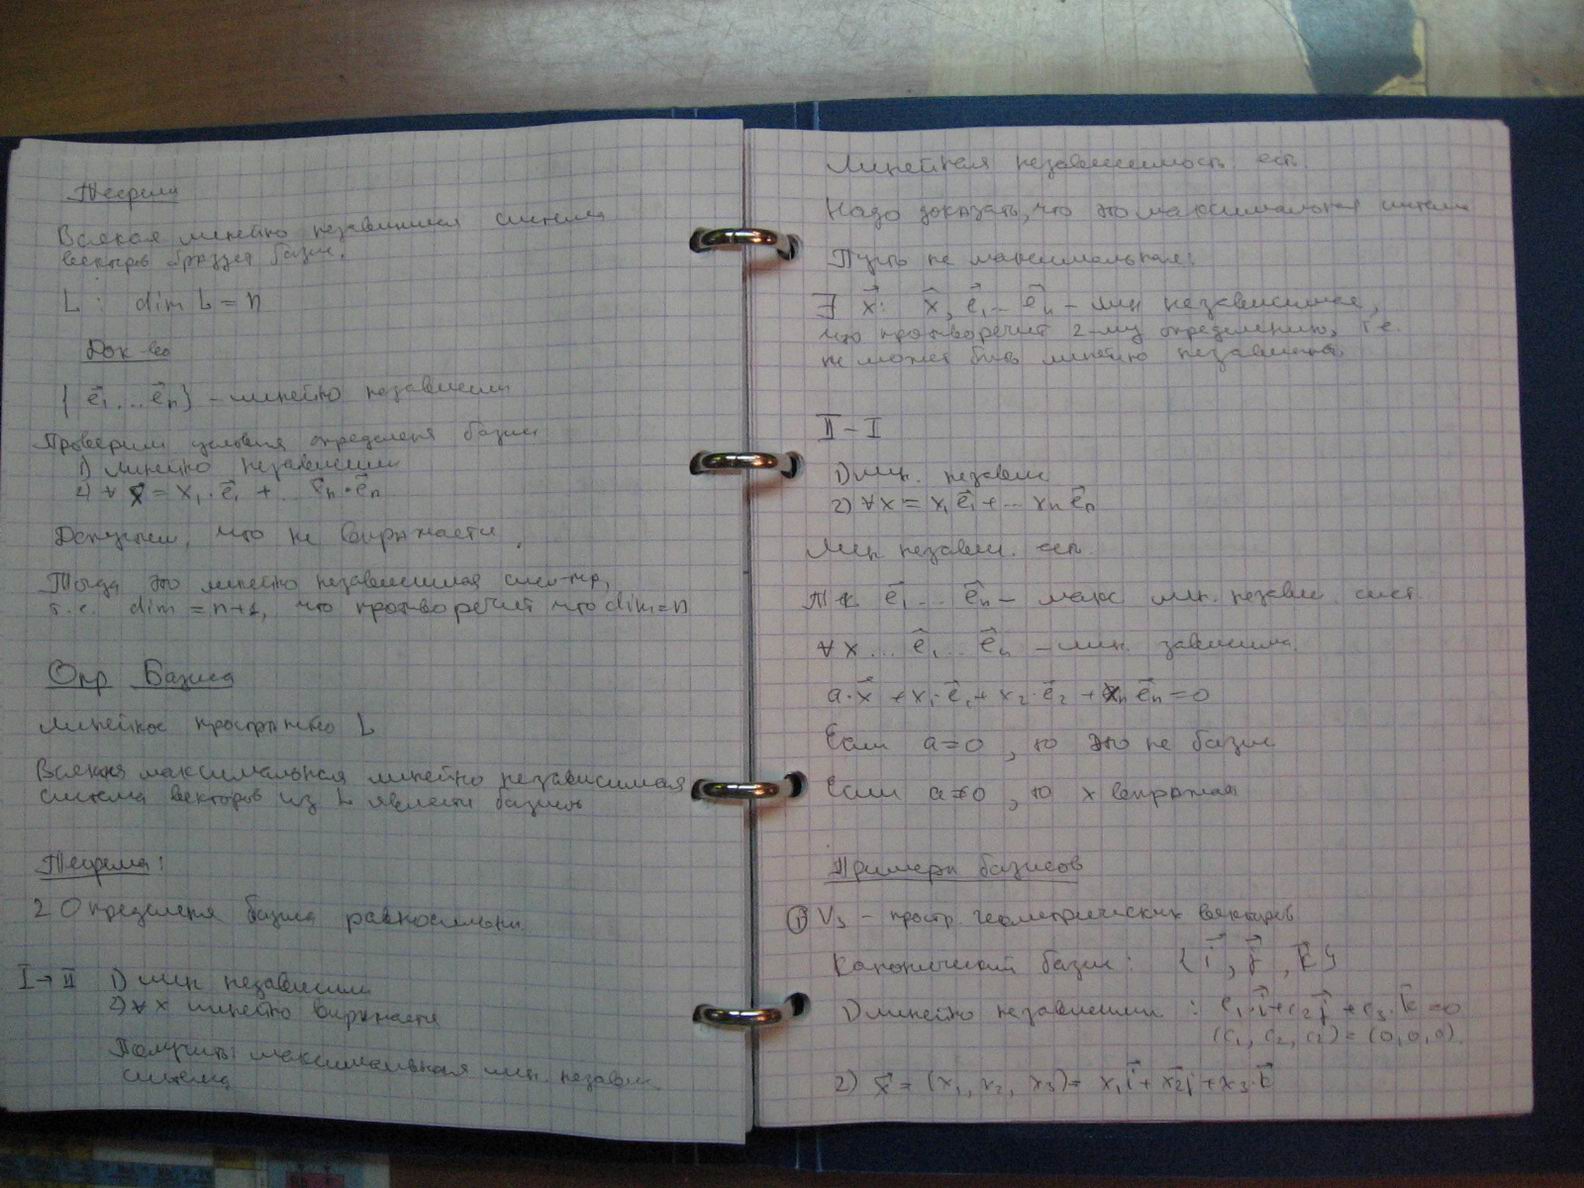 Теорема
Всякая линейно независимая система
векторов образует базис.
L : dim L = n
Док-во
{ e⃗₁ ... e⃗ₙ} - линейно независим
Проверим условия определения базиса
1) линейно независим
2) ∀ x⃗ = x₁·e⃗₁ + ... xₙ·e⃗ₙ
Допустим, что не выражается
Тогда это линейно независимая
т.е. dim = n+1, что противоречит что dim = n
Опр Базиса
Линейное пространство L
Всякая максимальная линейно независимая
система векторов из L является базисом
Теорема:
2 Определения базиса равносильны
I → II 1) лин независим
2) ∀ x линейно выражается
Получить: максимальная лин. независ.
система
Линейная независимость есть.
Надо доказать, что это максимальная система
Пусть не максимальная:
∃ x⃗: x⃗, e⃗₁ ... e⃗ₙ - лин независимая,
что противоречит 2-му определению, т.е.
не может быть линейно независима
II - I
1) лин. независ
2) ∀ x = x₁e⃗₁ + ... xₙe⃗ₙ
Лин независ. есть.
Т.к. e⃗₁ ... e⃗ₙ - макс лин. независ. сист.
∀ x ... e⃗₁ ... e⃗ₙ - лин. зависима
a·x⃗ + x₁·e⃗₁ + x₂·e⃗₂ + xₙe⃗ₙ = 0
Если a = 0, то это не базис
Если a ≠ 0, то x
Примеры базисов
① V₃ - простр. геометрических векторов
Канонический базис: { i⃗, j⃗, k⃗}
1) линейно независим : c₁·i⃗ + c₂j⃗ + c₃·k⃗ = 0
(c₁, c₂, c₂) = (0,0,0).
2) x⃗ = (x₁, x₂, x₃) = x₁i⃗ + x₂j⃗ + x₃·k⃗